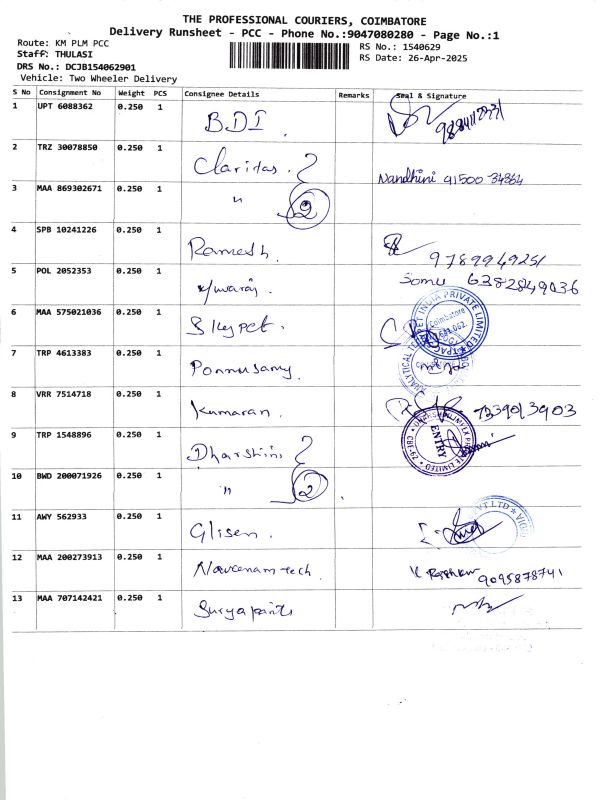 THE PROFESSIONAL COURIERS, COIMBATORE
Delivery Runsheet - PCC - Phone No.:9047080280 - Page No.:1
Route: KM PLM PCC
Staff: THULASI
DRS No.: DCJB154062901
Vehicle: Two Wheeler Delivery
RS No.: 1540629
RS Date: 26-Apr-2025
S No Consignment No Weight PCS Consignee Details Remarks Seal & Signature
1 UPT 6088362 0.250 1 BDI.
2 TRZ 30078850 0.250 1 Claridas. Nandhini 91500 34364
3 MAA 869302671 0.250 1 " 2
4 SPB 10241226 0.250 1 Ramesh. 9789949251
5 POL 2052353 0.250 1 Somu 6382849036
6 MAA 575021036 0.250 1 Skypet.
7 TRP 4613383 0.250 1 Ponnusamy.
8 VRR 7514718 0.250 1 Kumaran.
9 TRP 1548896 0.250 1 Dharshini ENTRY
10 BWD 200071926 0.250 1 " 2
11 AWY 562933 0.250 1 Glisen.
12 MAA 200273913 0.250 1 9095878741
13 MAA 707142421 0.250 1